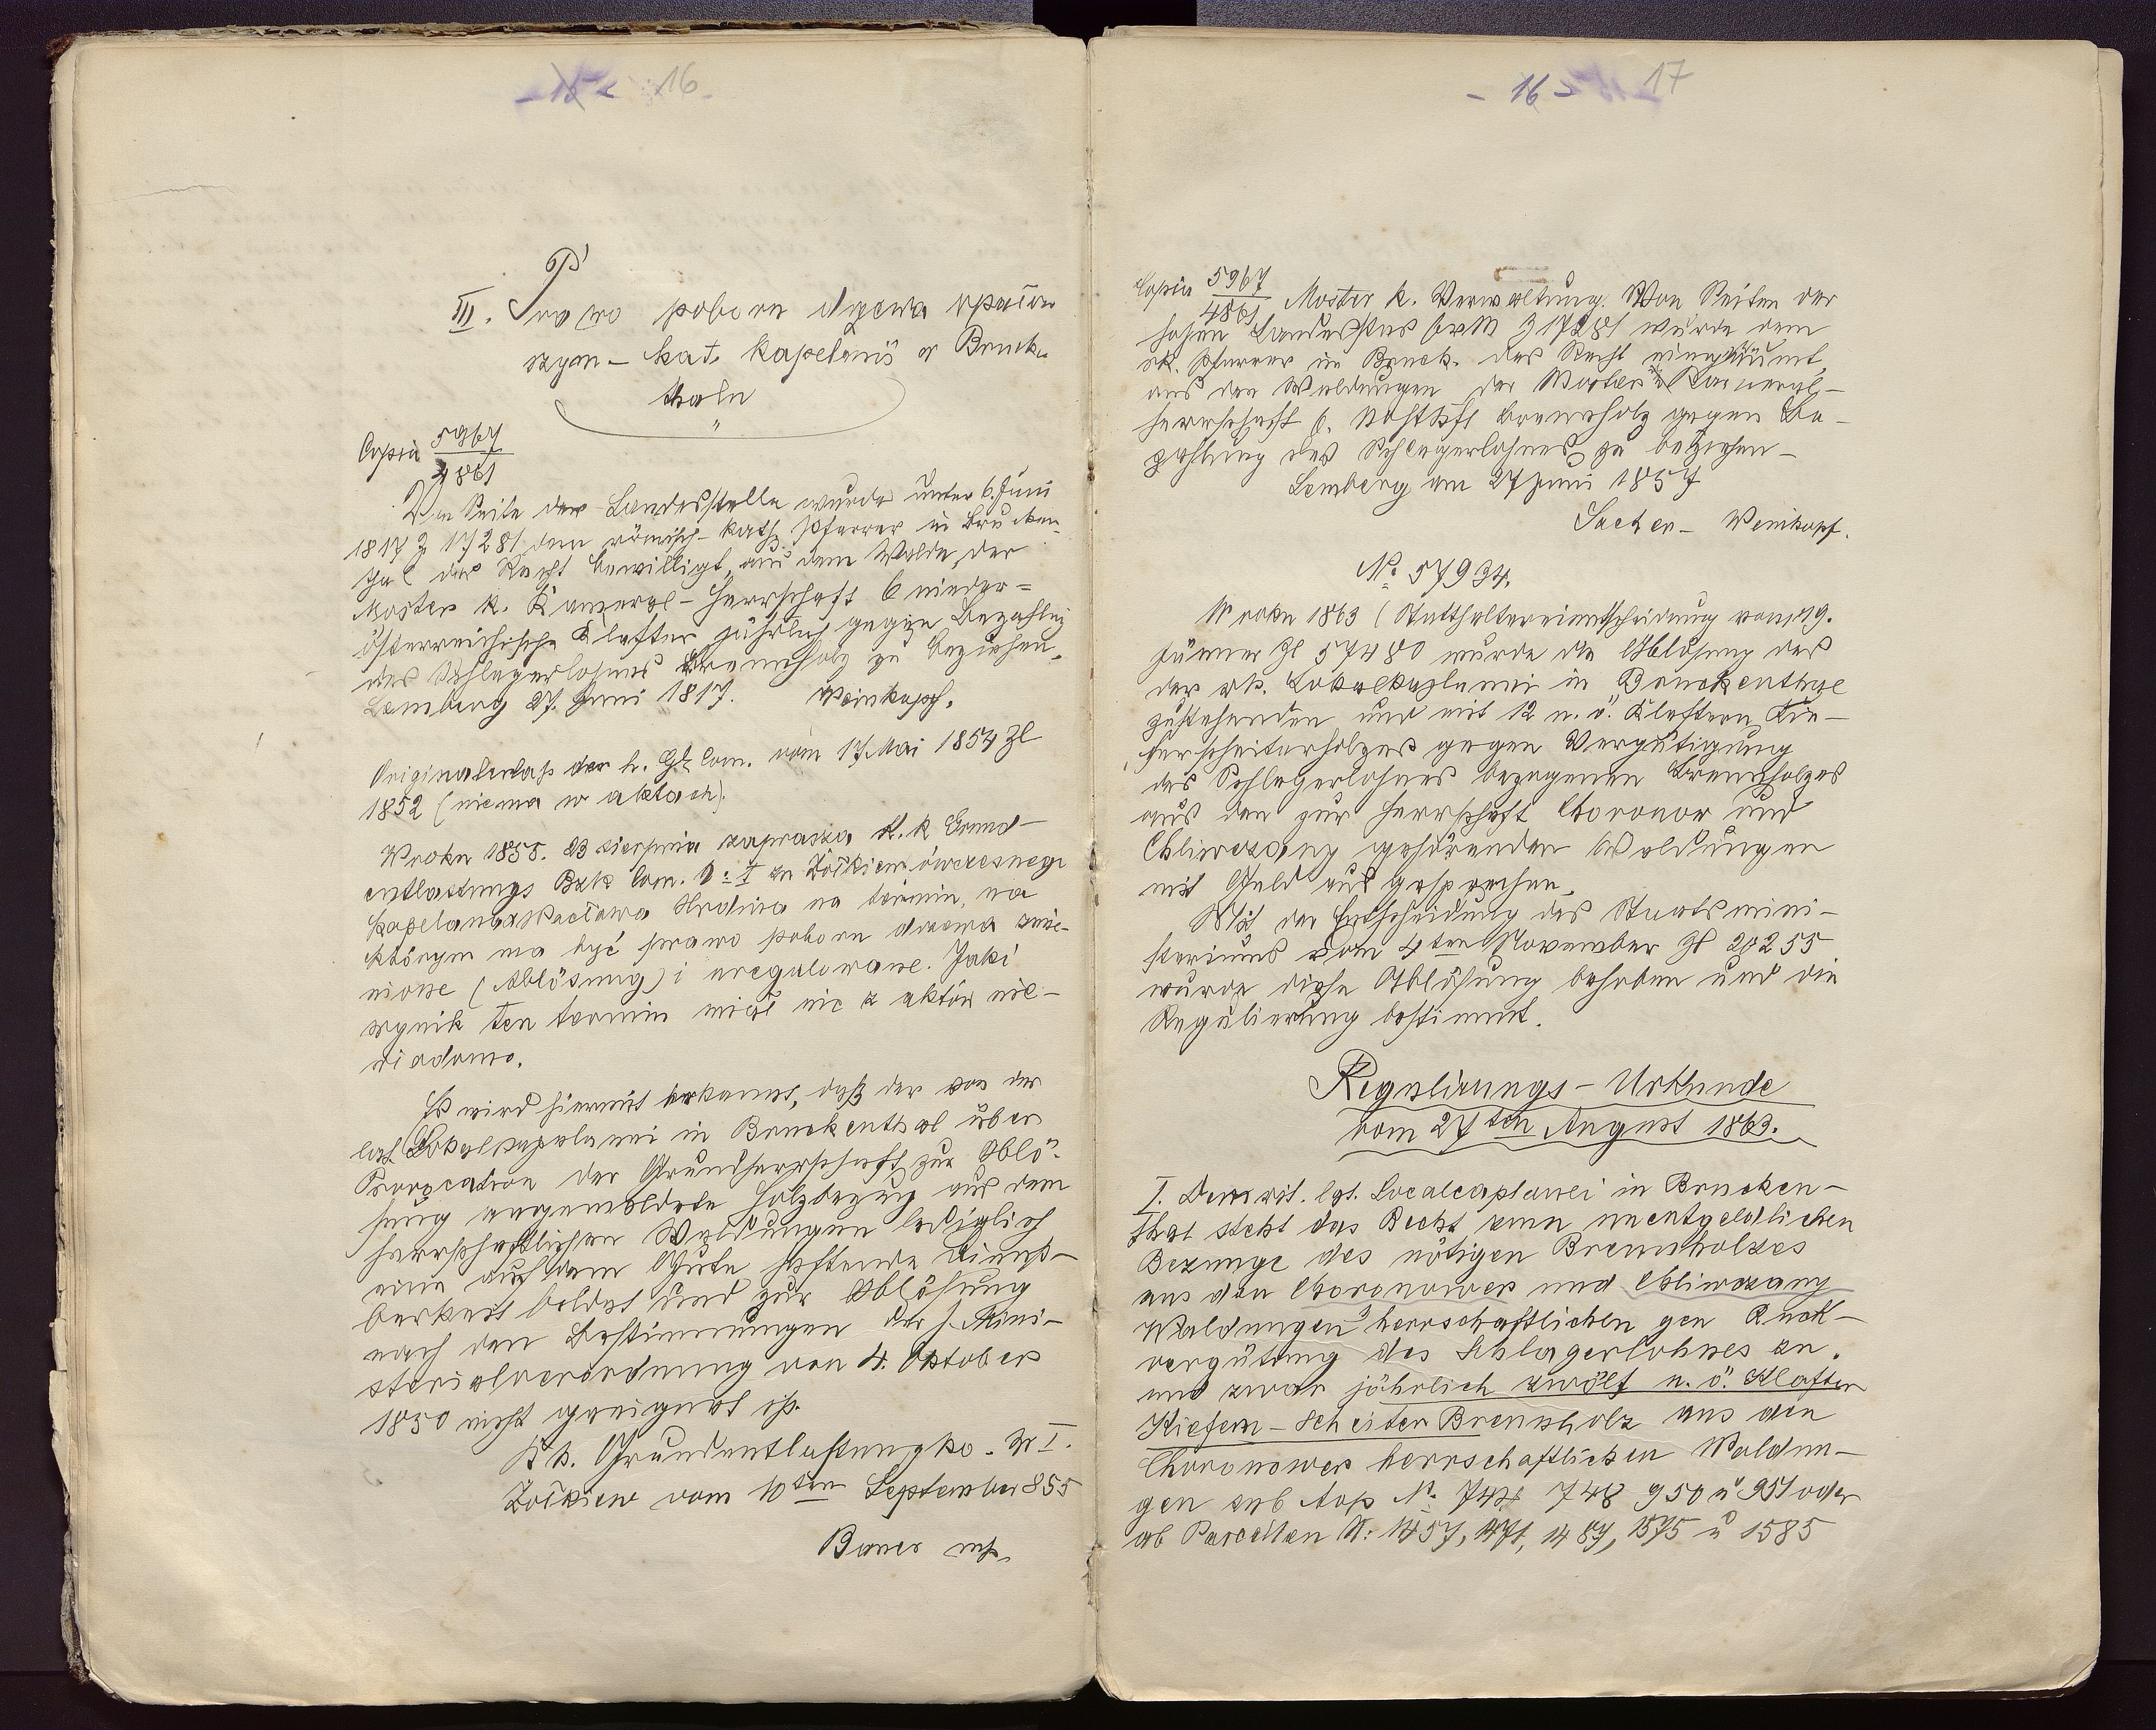 - 15 - 16
P
III. Prawo poboru drzewa opałow
rzym - kat. kapelanii w Brucken
thalu
Copia 5967
4861
Von Seite der Landesstelle wurde unter 6. Juni
1817 Z 17281 dem römisch-kath. Pfarrer in Brucken-
thal das Recht bewilligt, aus dem Walde der
Moster k. Kameral-Herrschaft 6 nieder=
österreichische Klafter jährlich gegen Bezahlung
des Schlagerlohnes Brennholz zu beziehen.
Lemberg 27. Juni 1817. Weinkopf.
Originalerlaß der h. Gl. Com. vom 17 Mai 1854 Zl
1852 (niema w aktach).
W roku 1855. 23 sierpnia zaprasza K. k Grund-
entlastungs Bzk Com. N: I in Żółkiew ówczesnego
kapelana Wacława Hrdina na termin, na
którym ma być prawo poboru drzewa znie-
sione (Ablösung) i uregulowane. Jaki
wynik ten termin miał nic z aktów nie-
wiadomo.
Es wird hiermit erkannt, daß der von der
lat. Lokalkaplanei in Bruckenthal über
Provocation der Grundherrschaft zur Ablö-
sung angemeldete Holzbezug aus dem
herrschaftlichen Waldungen lediglich
eine auf dem Gute haftende Dienst-
barkeit bildet und zur Ablösung
nach den Bestimmungen der h. Mini-
sterialverordnung von 4. Oktober
1850 nicht geeignet ist.
Kk. Grundentlastungko. N I.
Żołkiew vom 10ten September 855
Bauer mp.
- 16 - 17
Copia 5967
4861 Moster k. Verwaltung. Von Seiten der
hohen Landesstelle Z 17281 wurde dem
rk. Pfarrer in Bruck. das Recht eingeräumt,
aus den Waldungen der Moster Kameral-
herrschaft 6 Klft Brennholz gegen Be-
zahlung des Schlagerlohnes zu beziehen -
Lemberg am 27 Juni 1857
Sacher - Weinkopf.
No 57934.
W roku 1863 (Statthaltereientscheidung vom 19.
Jänner Zl 57480 wurde die Ablösung des
der rk. Lokalkaplanei in Bruckenthal
zustehenden und mit 12 n. ö. Klaftern Kie-
ferscheiterholzes gegen Vergütigung
des Schlagerlohnes bezogenen Brennholzes
aus den zur Herrschaft Choronow und
Chliwczany gehörenden Waldungen
mit Geld aus gesprochen.
Mit der Entscheidung des Staatsmini-
steriums vom 4ten November Zl 20255
wurde diese Ablösung behoben und die
Regulierung bestimmt.
Regulirungs - Urkunde
vom 27ten August 1863.
I. Dem rit. lat. Localcaplanei in Brucken-
thal steht das Recht zum unentgeldlichen
Bezuge des nötigen Brennholzes
aus den Choronower und Chliwczany
Waldungen herrschaftlichen gen Rück-
vergütung des Schlagerlohnes zu,
und zwar jährlich zwölf n. ö. Klafter
Kiefern-Scheiter Brennholz aus den
Choronower herrschaftlichen Waldun-
gen sub top No 747 748 950 u 951 oder
ab Parcellen N: 1457, 1471, 1487, 1575 u 1585